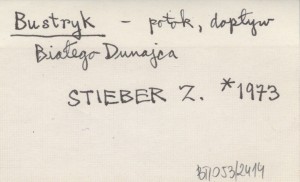 Bustryk - potok, dopływ
Białego Dunajca
STIEBER Z. *1973
053/2414